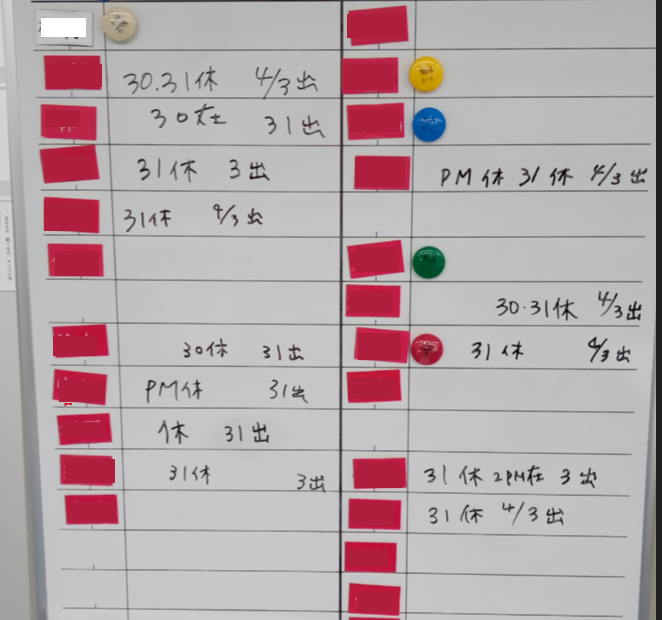 30.31休 4/3出
30在 31出
31休 3出
31休 4/3出
30休 31出
PM休 31出
休 31出
31休 3出
PM休 31休 4/3出
30.31休 4/3出
31休 4/3出
31休 2PM在 3出
31休 4/3出